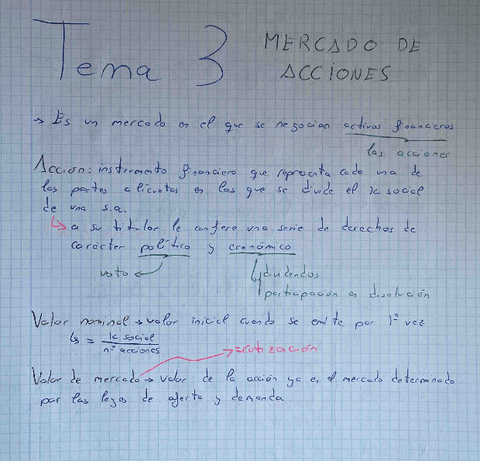 Tema 3 MERCADO DE
ACCIONES
→ Es un mercado en el que se negocian activos financieros
las acciones
Acción: instrumento financiero que representa cada una de
las partes alícuotas en las que se divide el K social
de una s.a.
↳ a su titular le confiere una serie de derechos de
carácter político y económico
voto ↲ ↳ dividendos
participación en disolución
Valor nominal → valor inicial cuando se emite por 1ª vez
↳ = K social / nº acciones
= cotización
Valor de mercado → valor de la acción ya en el mercado determinado
por las leyes de oferta y demanda